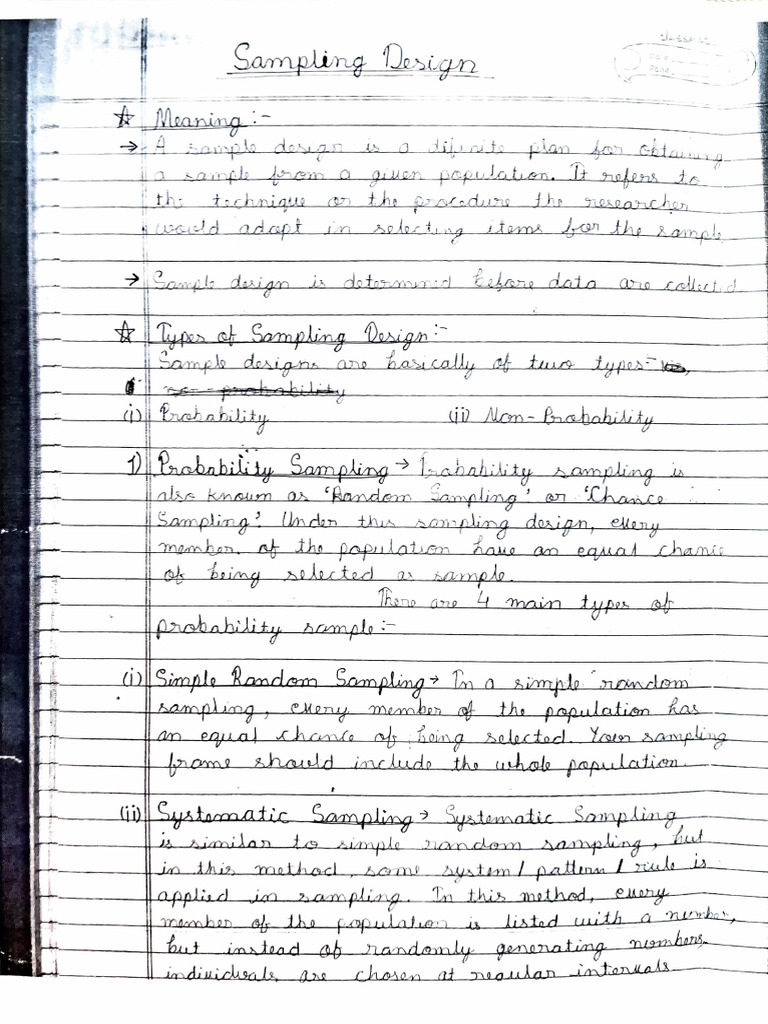 Sampling Design
☆ Meaning :-
→ A sample design is a difinite plan for obtaining
a sample from a given population. It refers to
the technique or the procedure the researcher
would adapt in selecting items for the sample
→ Sample design is determined before data are collected
☆ Types of Sampling Design :-
Sample designs are basically of two types-
non-probability
(i) Probability (ii) Non-Probability
1) Probability Sampling → Probability sampling is
also known as 'Random Sampling' or 'Chance
Sampling'. Under this sampling design, every
member of the population have an equal chance
of being selected as sample.
There are 4 main types of
probability sample :-
(i) Simple Random Sampling → In a simple random
sampling, every member of the population has
an equal chance of being selected. Your sampling
frame should include the whole population.
(ii) Systematic Sampling → Systematic Sampling
is similar to simple random sampling, but
in this method, some system / pattern / rule is
applied in sampling. In this method, every
member of the population is listed with a number,
but instead of randomly generating numbers
individuals are chosen at regular intervals.